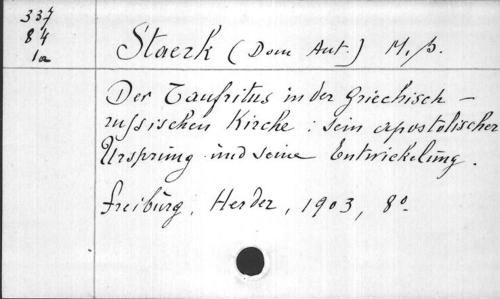 337
84
1a
Staerk (Dom Ant.) M. p.
Der Taufritus in der Griechisch -
russischen Kirche : sein apostolischer
Ursprung und seine Entwickelung.
Freiburg, Herder, 1903, 8º